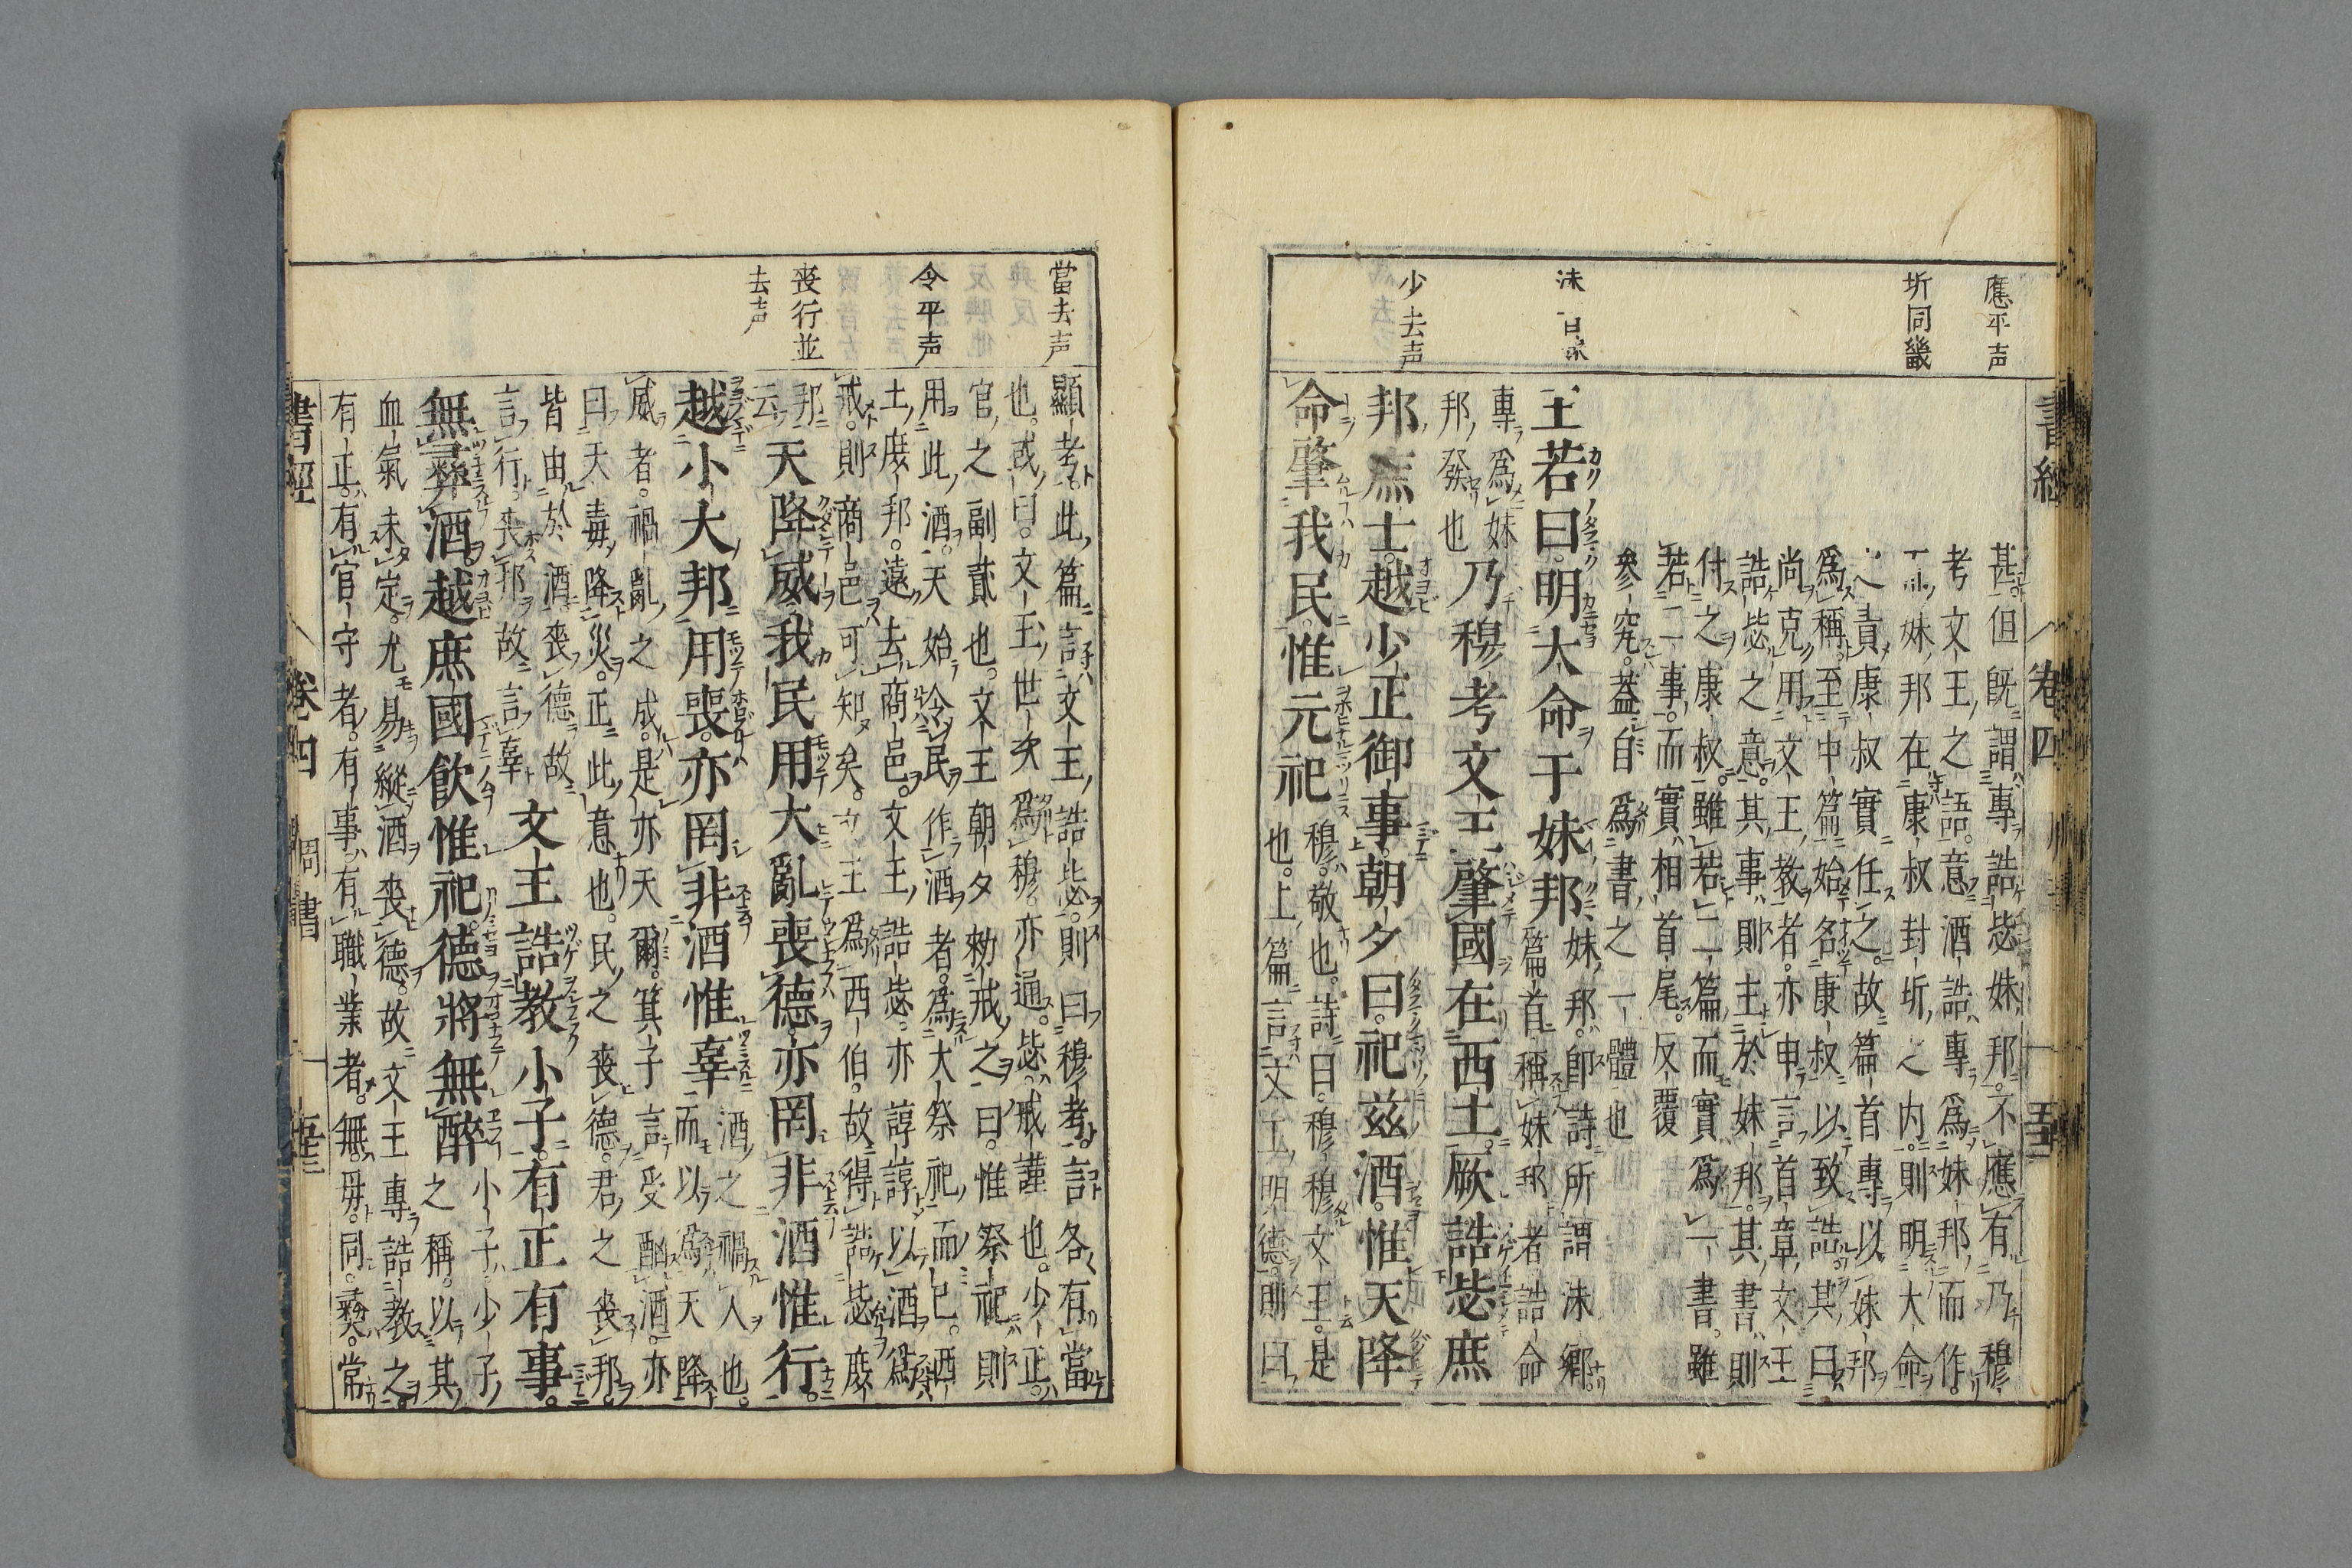 應平声
圻同畿
沬音昧
少去声
書經 卷四
甚。但既謂專誥毖妹邦。不應有乃穆
考文王之語。意酒誥專爲妹邦而作。
而妹邦在康叔封圻之内。則明大命
之責康叔實任之。故篇首專以妹邦
爲稱。至中篇始名康叔以致誥。其曰
尚克用文王教者。亦申言首章文王
誥毖之意。其事則主於妹邦。其書則
付之康叔。雖若二篇而實爲一書。雖
若二事。而實相首尾。反覆
參究。蓋自爲書之一體也
王若曰。明大命于妹邦
妹邦。卽詩所謂沬鄉。
篇首稱妹邦者誥命
專爲妹
邦發也
乃穆考文王肇國在西土。厥誥毖庶
邦庶士。越少正御事。朝夕曰。祀茲酒。惟天降
命肇我民惟元祀
穆。敬也。詩曰。穆穆文王。是
也。上篇言文王明德。則曰
當去声
令平声
喪行並
去声
顯考。此篇言文王誥毖。則曰穆考。言各有當
也。或曰。文王世次爲穆。亦通。毖。戒謹也。少正。
官之副貳也。文王朝夕勑戒之曰。惟祭祀則
用此酒。天始令民作酒者。爲大祭祀而已。西
土庶邦。遠去商邑。文王誥毖。亦諄諄以酒爲
戒。則商邑可知矣。文王爲西伯。故得誥毖庶
邦
云
天降威我民用大亂喪德。亦罔非酒惟行。
越小大邦用喪。亦罔非酒惟辜
酒之禍人也。
而以爲天降
威者。禍亂之成。是亦天爾。箕子言受酗酒。亦
曰天毒降災。正此意也。民之喪德。君之喪邦。
皆由於酒喪德故
言行。喪邦故言辜
文王誥教小子。有正有事。
無彝酒。越庶國飮惟祀。德將無醉
小子。少子
之稱。以其
血氣未定。尤易縱酒喪德。故文王專誥教之。
有正。有官守者。有事。有職業者。無。毋同。彝。常
書經 卷四 周書